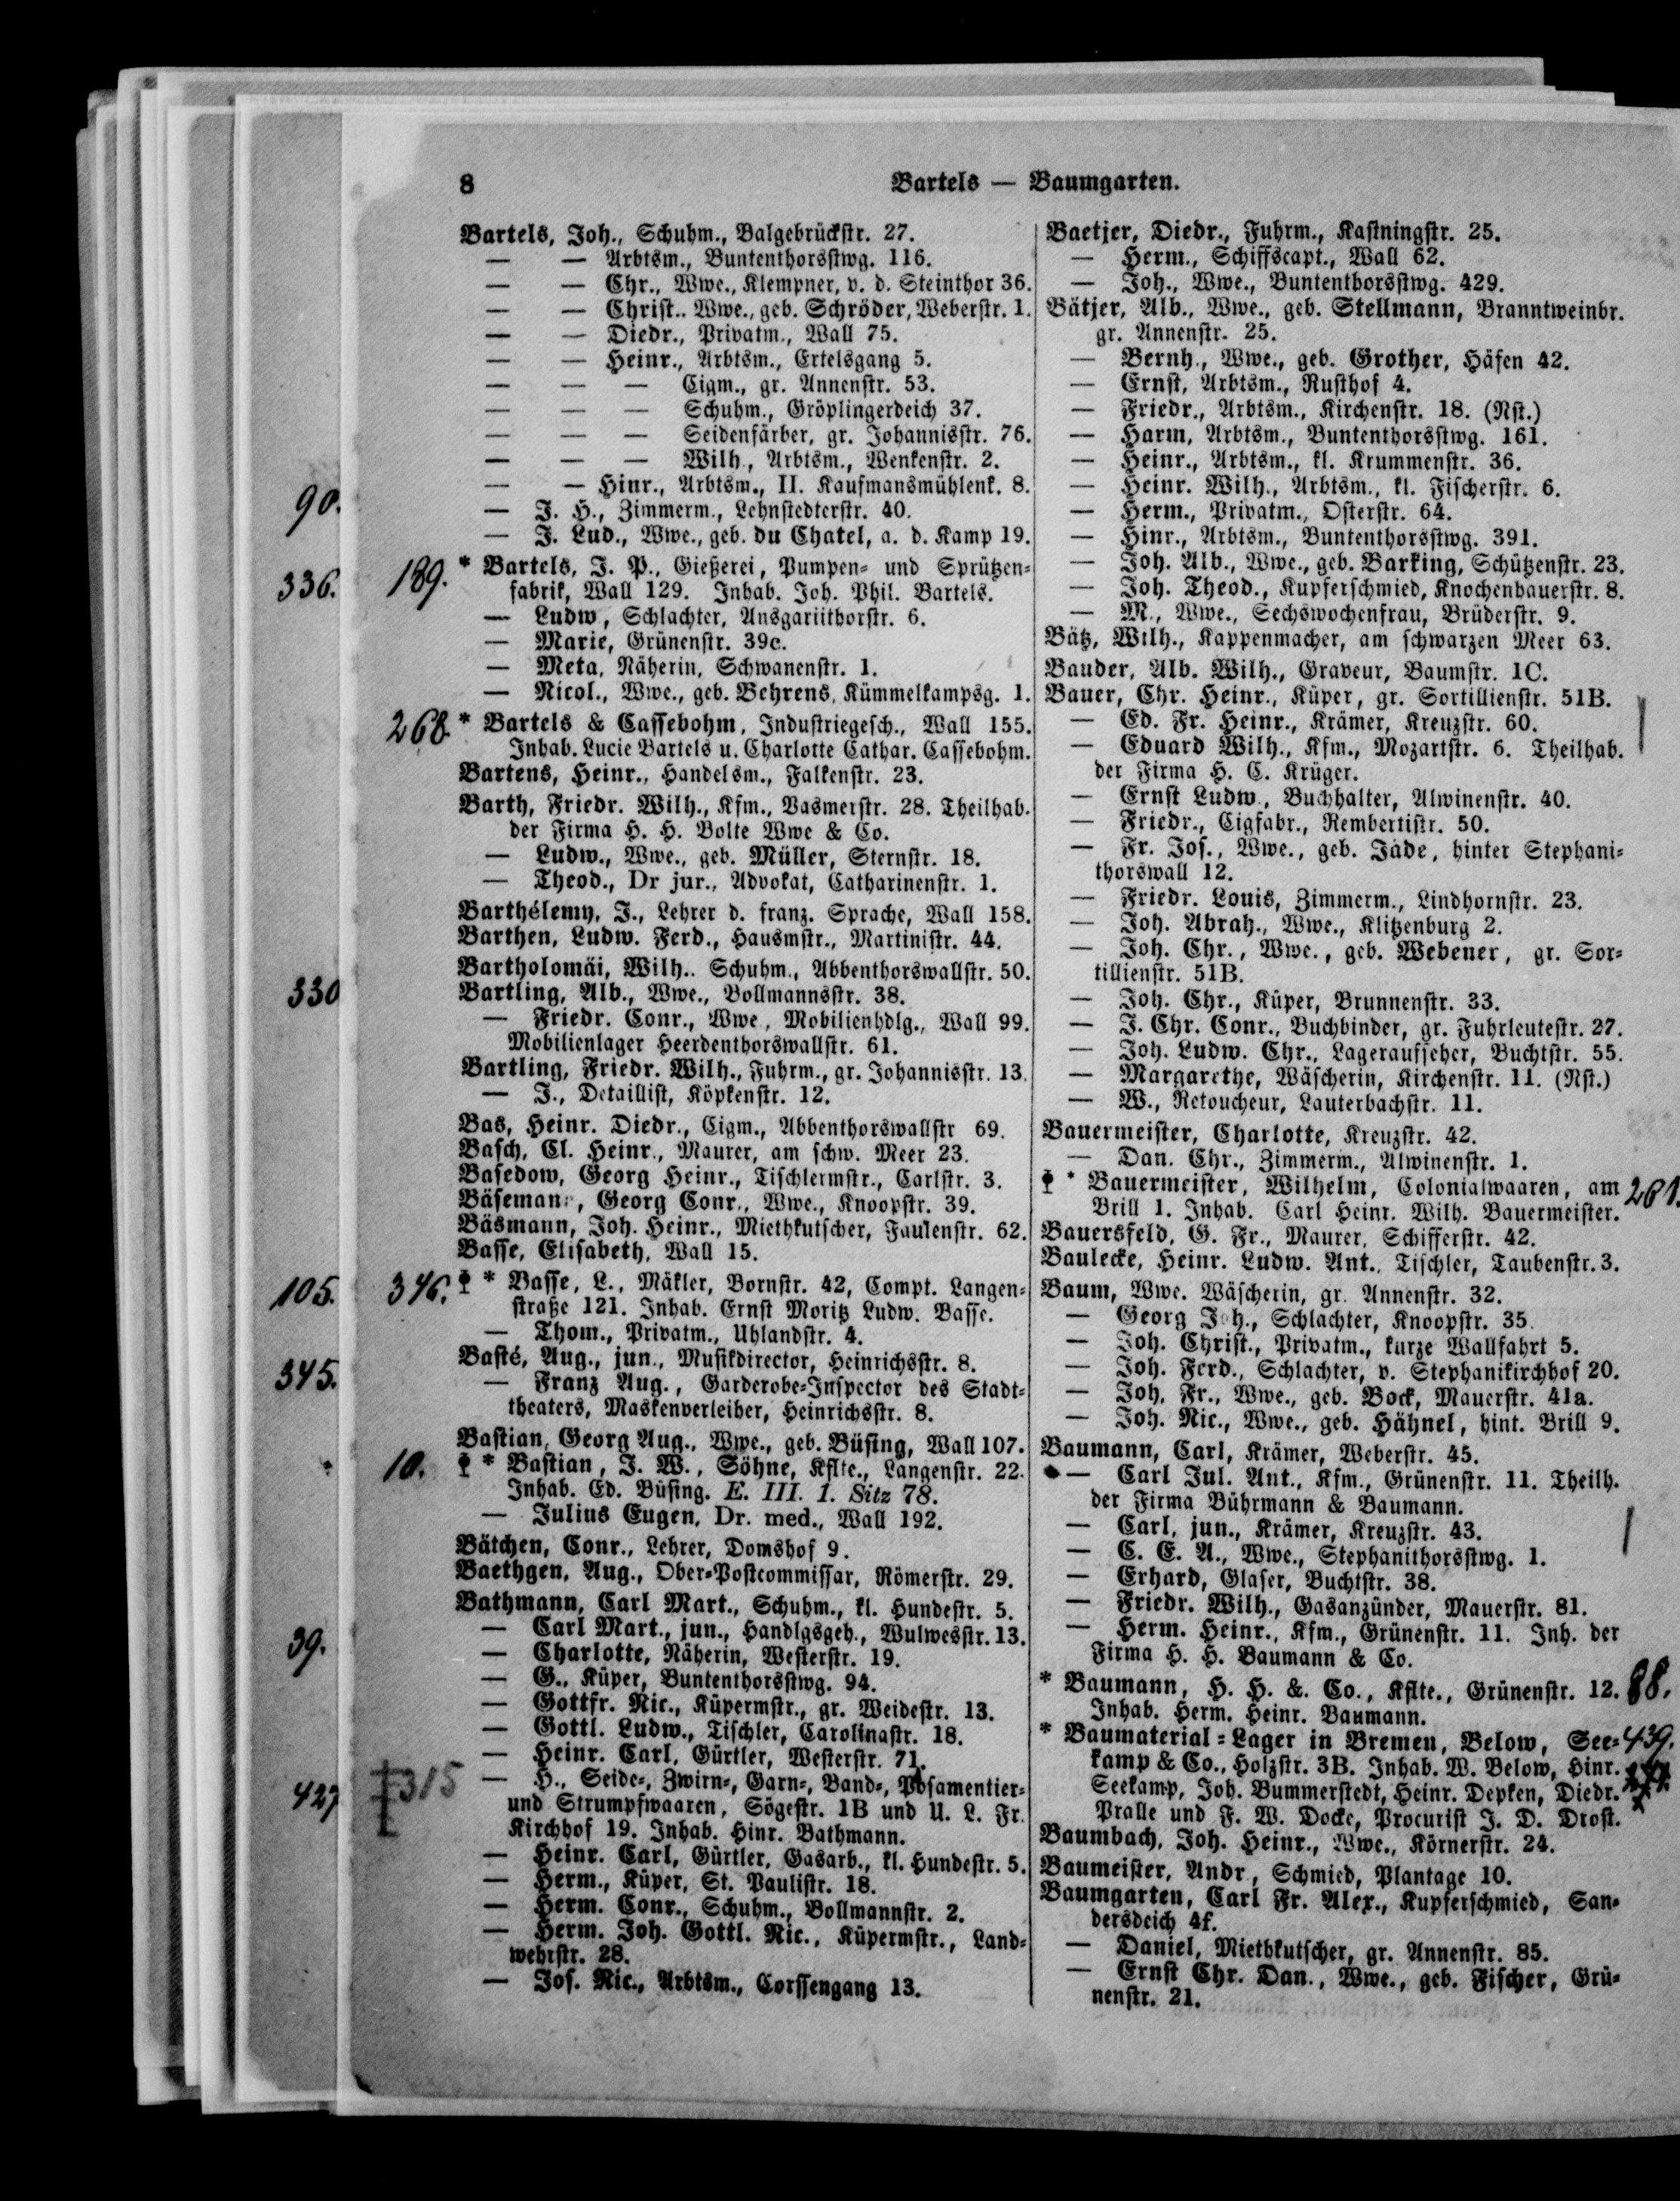 8
Bartels — Baumgarten.
Bartels, Joh., Schuhm., Balgebrückstr. 27.
— — Arbtsm., Buntenthorsstwg. 116.
— — Chr., Wwe., Klempner, v. d. Steinthor 36.
— — Christ.. Wwe., geb. Schröder, Weberstr. 1.
— — Diedr., Privatm., Wall 75.
— — Heinr., Arbtsm., Ertelsgang 5.
— — — Cigm., gr. Annenstr. 53.
— — — Schuhm., Gröplingerdeich 37.
— — — Seidenfärber, gr. Johannisstr. 76.
— — — Wilh., Arbtsm., Wenkenstr. 2.
— — Hinr., Arbtsm., II. Kaufmansmühlenk. 8.
90.
— J. H., Zimmerm., Lehnstedterstr. 40.
— J. Lud., Wwe., geb. du Chatel, a. d. Kamp 19.
336. 189. * Bartels, J. P., Gießerei, Pumpen- und Sprützen-
fabrik, Wall 129. Inhab. Joh. Phil. Bartels.
— Ludw, Schlachter, Ansgariithorstr. 6.
— Marie, Grünenstr. 39c.
— Meta, Näherin, Schwanenstr. 1.
— Nicol., Wwe., geb. Behrens, Kümmelkampsg. 1.
268. * Bartels & Cassebohm, Industriegesch., Wall 155.
Inhab. Lucie Bartels u. Charlotte Cathar. Cassebohm.
Bartens, Heinr., Handelsm., Falkenstr. 23.
Barth, Friedr. Wilh., Kfm., Vasmerstr. 28. Theilhab.
der Firma H. H. Bolte Wwe & Co.
— Ludw., Wwe., geb. Müller, Sternstr. 18.
— Theod., Dr jur., Advokat, Catharinenstr. 1.
Barthélemy, J., Lehrer d. franz. Sprache, Wall 158.
Barthen, Ludw. Ferd., Hausmstr., Martinistr. 44.
Bartholomäi, Wilh.. Schuhm., Abbenthorswallstr. 50.
330
Bartling, Alb., Wwe., Vollmannsstr. 38.
— Friedr. Conr., Wwe, Mobilienhdlg., Wall 99.
Mobilienlager Heerdenthorswallstr. 61.
Bartling, Friedr. Wilh., Fuhrm., gr. Johannisstr. 13.
— J., Detaillist, Köpkenstr. 12.
Bas, Heinr. Diedr., Cigm., Abbenthorswallstr 69.
Basch, Cl. Heinr., Maurer, am schw. Meer 23.
Basedow, Georg Heinr., Tischlermstr., Carlstr. 3.
Bäsemann, Georg Conr., Wwe., Knoopstr. 39.
Bäsmann, Joh. Heinr., Miethkutscher, Faulenstr. 62.
Basse, Elisabeth, Wall 15.
105. 346. * Basse, L., Mäkler, Bornstr. 42, Compt. Langen-
straße 121. Inhab. Ernst Moritz Ludw. Basse.
— Thom., Privatm., Uhlandstr. 4.
Basté, Aug., jun., Musikdirector, Heinrichsstr. 8.
345.
— Franz Aug., Garderobe-Inspector des Stadt-
theaters, Maskenverleiher, Heinrichsstr. 8.
Bastian, Georg Aug., Wwe., geb. Büsing, Wall 107.
10. * Bastian, J. W., Söhne, Kflte., Langenstr. 22.
Inhab. Ed. Büsing. E. III. 1. Sitz 78.
— Julius Eugen, Dr. med., Wall 192.
Bätchen, Conr., Lehrer, Domshof 9.
Baethgen, Aug., Ober-Postcommissar, Römerstr. 29.
Bathmann, Carl Mart., Schuhm., kl. Hundestr. 5.
39.
— Carl Mart., jun., Handlgsgeh., Wulwesstr. 13.
— Charlotte, Näherin, Westerstr. 19.
— G., Küper, Buntenthorsstwg. 94.
— Gottfr. Nic., Küpermstr., gr. Weidestr. 13.
— Gottl. Ludw., Tischler, Carolinastr. 18.
— Heinr. Carl, Gürtler, Westerstr. 71.
427 315 — H., Seide-, Zwirn-, Garn-, Band-, Posamentier-
und Strumpfwaaren, Sögestr. 1B und U. L. Fr.
Kirchhof 19. Inhab. Hinr. Bathmann.
— Heinr. Carl, Gürtler, Gasarb., kl. Hundestr. 5.
— Herm., Küper, St. Paulistr. 18.
— Herm. Conr., Schuhm., Vollmannstr. 2.
— Herm. Joh. Gottl. Nic., Küpermstr., Land-
wehrstr. 28.
— Jos. Nic., Arbtsm., Corssengang 13.
Baetjer, Diedr., Fuhrm., Kastningstr. 25.
— Herm., Schiffscapt., Wall 62.
— Joh., Wwe., Buntenthorsstwg. 429.
Bätjer, Alb., Wwe., geb. Stellmann, Branntweinbr.
gr. Annenstr. 25.
— Bernh., Wwe., geb. Grother, Häfen 42.
— Ernst, Arbtsm., Rusthof 4.
— Friedr., Arbtsm., Kirchenstr. 18. (Nst.)
— Harm, Arbtsm., Buntenthorsstwg. 161.
— Heinr., Arbtsm., kl. Krummenstr. 36.
— Heinr. Wilh., Arbtsm., kl. Fischerstr. 6.
— Herm., Privatm., Osterstr. 64.
— Hinr., Arbtsm., Buntenthorsstwg. 391.
— Joh. Alb., Wwe., geb. Barking, Schützenstr. 23.
— Joh. Theod., Kupferschmied, Knochenhauerstr. 8.
— M., Wwe., Sechswochenfrau, Brüderstr. 9.
Bätz, Wilh., Kappenmacher, am schwarzen Meer 63.
Bauder, Alb. Wilh., Graveur, Baumstr. 1C.
Bauer, Chr. Heinr., Küper, gr. Sortillienstr. 51B.
— Ed. Fr. Heinr., Krämer, Kreuzstr. 60.
— Eduard Wilh., Kfm., Mozartstr. 6. Theilhab.
der Firma H. C. Krüger.
— Ernst Ludw., Buchhalter, Alwinenstr. 40.
— Friedr., Cigfabr., Rembertistr. 50.
— Fr. Jos., Wwe., geb. Jäde, hinter Stephani-
thorswall 12.
— Friedr. Louis, Zimmerm., Lindhornstr. 23.
— Joh. Abrah., Wwe., Klitzenburg 2.
— Joh. Chr., Wwe., geb. Webener, gr. Sor-
tillienstr. 51B.
— Joh. Chr., Küper, Brunnenstr. 33.
— J. Chr. Conr., Buchbinder, gr. Fuhrleutestr. 27.
— Joh. Ludw. Chr., Lageraufseher, Buchtstr. 55.
— Margarethe, Wäscherin, Kirchenstr. 11. (Nst.)
— W., Retoucheur, Lauterbachstr. 11.
Bauermeister, Charlotte, Kreuzstr. 42.
— Dan. Chr., Zimmerm., Alwinenstr. 1.
* Bauermeister, Wilhelm, Colonialwaaren, am 261.
Brill 1. Inhab. Carl Heinr. Wilh. Bauermeister.
Bauersfeld, G. Fr., Maurer, Schifferstr. 42.
Baulecke, Heinr. Ludw. Ant., Tischler, Taubenstr. 3.
Baum, Wwe. Wäscherin, gr. Annenstr. 32.
— Georg Joh., Schlachter, Knoopstr. 35.
— Joh. Christ., Privatm., kurze Wallfahrt 5.
— Joh. Ferd., Schlachter, v. Stephanikirchhof 20.
— Joh. Fr., Wwe., geb. Bock, Mauerstr. 41a.
— Joh. Nic., Wwe., geb. Hähnel, hint. Brill 9.
Baumann, Carl, Krämer, Weberstr. 45.
— Carl Jul. Ant., Kfm., Grünenstr. 11. Theilh.
der Firma Bührmann & Baumann.
— Carl, jun., Krämer, Kreuzstr. 43.
— C. E. A., Wwe., Stephanithorsstwg. 1.
— Erhard, Glaser, Buchtstr. 38.
— Friedr. Wilh., Gasanzünder, Mauerstr. 81.
— Herm. Heinr., Kfm., Grünenstr. 11. Inh. der
Firma H. H. Baumann & Co.
* Baumann, H. H. &. Co., Kflte., Grünenstr. 12. 88.
Inhab. Herm. Heinr. Baumann.
* Baumaterial-Lager in Bremen, Below, See- 439.
kamp & Co., Holzstr. 3B. Inhab. W. Below, Hinr.
Seekamp, Joh. Bummerstedt, Heinr. Depken, Diedr.
Pralle und F. W. Docke, Procurist J. D. Drost.
Baumbach, Joh. Heinr., Wwe., Körnerstr. 24.
Baumeister, Andr, Schmied, Plantage 10.
Baumgarten, Carl Fr. Alex., Kupferschmied, San-
dersdeich 4f.
— Daniel, Miethkutscher, gr. Annenstr. 85.
— Ernst Chr. Dan., Wwe., geb. Fischer, Grü-
nenstr. 21.